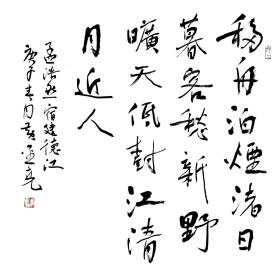 移舟泊煙渚日
暮客愁新野
曠天低樹江清
月近人
孟浩然宿建德江
庚子春月